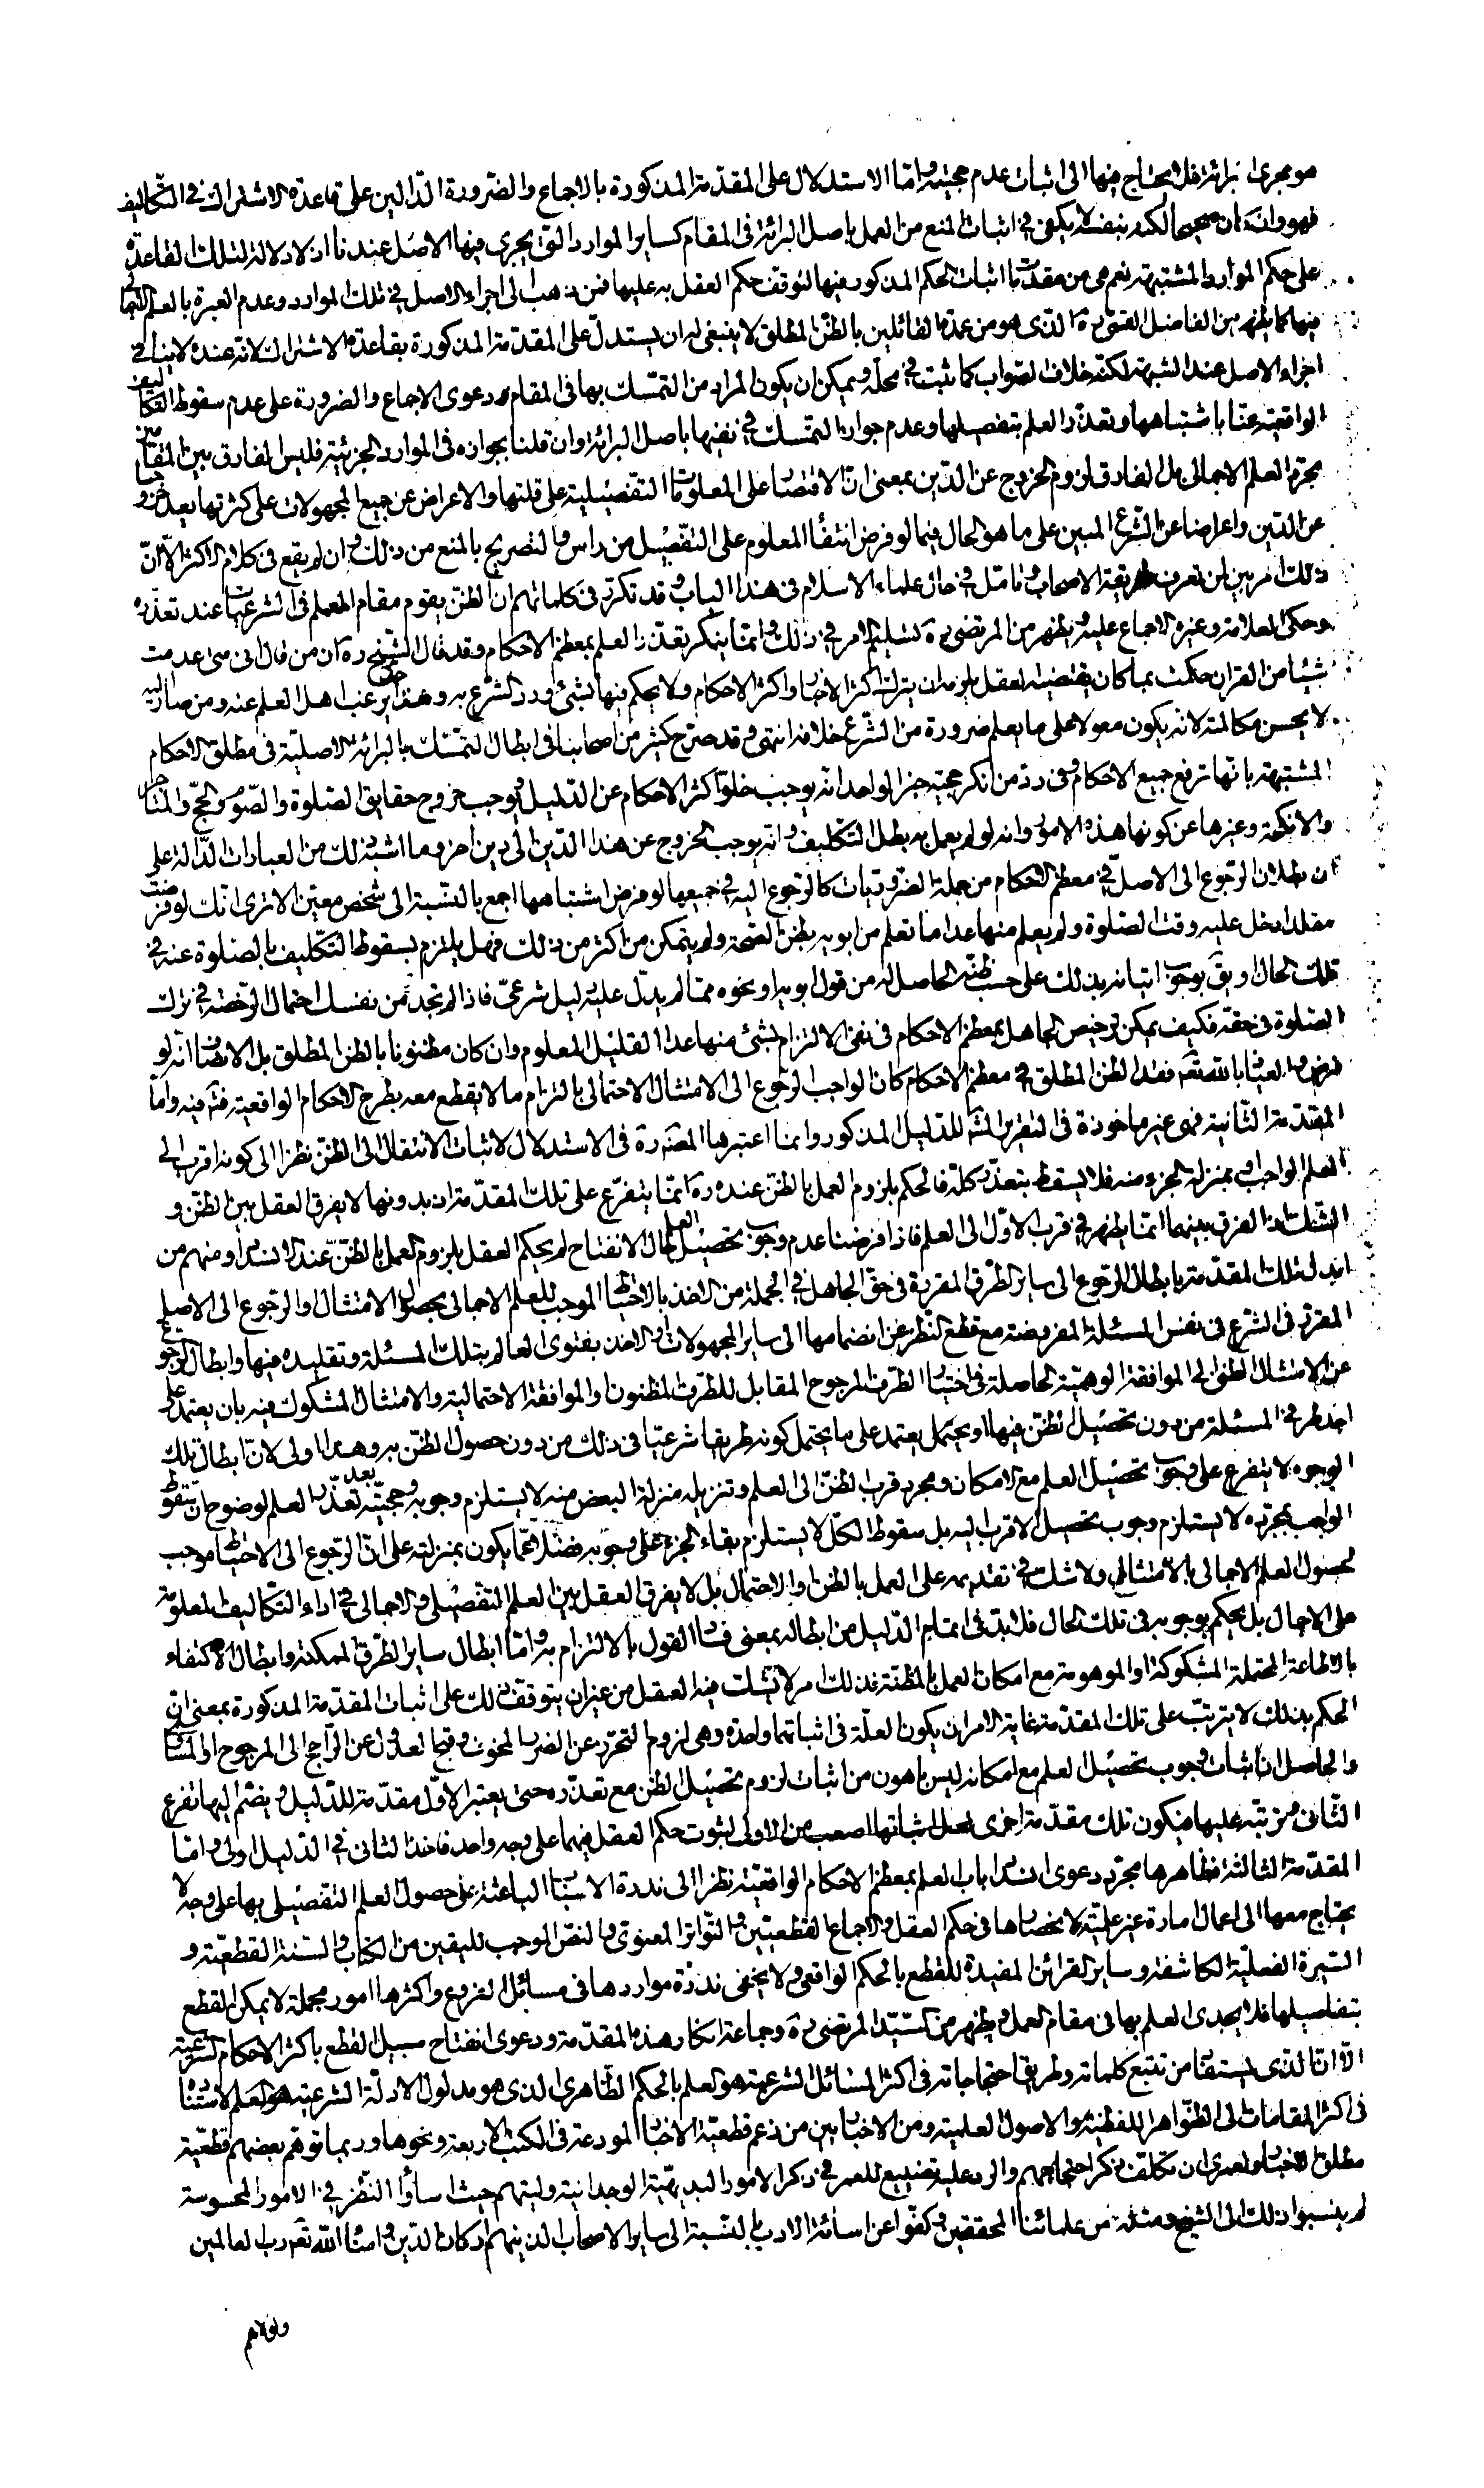 هو مجرى البرائة فلا يحتاج منها الى اثبات عدم حجيته واما الاستدلال على المقدمة المذكورة بالاجماع والضرورة الدالين على قاعدة الاشتراك فى التكاليف
فهو وان كان صحيحا لكنه بنفسه لا يكفى فى اثبات المنع من العمل باصل البرائة فى المقام كساير الموارد التى يجرى فيها الاصل عندنا اذ لا دلالة لتلك القاعدة
على حكم الموارد المشتبهة نعم هى من مقدمات اثبات الحكم المذكور فيها لتوقف حكم العقل به عليها فمن ذهب الى اجراء الاصل فى تلك الموارد وعدم العبرة بالعلم الاجمالى
فيها كما يظهر من الفاضل القمى ره الذى هو من عمدة القائلين بالظن المطلق لا ينبغى له ان يستدل على المقدمة المذكورة بقاعدة الاشتراك لانه عنده لا ينافى
اجراء الاصل عند الشبهة لكنه خلاف الصواب كما ثبت فى محله ويمكن ان يكون المراد من التمسك بها فى المقام دعوى الاجماع والضرورة على عدم سقوط التكاليف
الواقعية عنا باشتباهها وتعذر العلم بتفصيلها وعدم جواز التمسك فى نفيها باصل البرائة وان قلنا بجوازه فى الموارد الجزئية فليس الفارق بين المقامين
مجرد العلم الاجمالى بل الفارق لزوم الخروج عن الدين بمعنى ان الاقتصار على المعلومات التفصيلية على قلتها والاعراض عن جميع المجهولات على كثرتها يعد خروجا
عن الدين واعراضا عن الشرع المبين على ما هو الحال فيما لو فرض انتفاء المعلوم على التفصيل من راس والتصريح بالمنع من ذلك وان لم يقع فى كلام الاكثر الا ان
ذلك امر بين لمن تعرف طريقة الاصحاب وتامل فى حال علماء الاسلام فى هذا الباب وقد تكرر فى كلماتهم ان الظن يقوم مقام العلم فى الشرعيات عند تعذره
وحكى العلامة وغيره الاجماع عليه ويظهر من المرتضى ره تسليم الامر فى ذلك وانما ينكر تعذر العلم بمعظم الاحكام وقد قال الشيخ ره ان من قال انى متى عدمت
شيئا من القرائن حكمت بما كان يقتضيه العقل يلزمه ان يترك اكثر الاخبار واكثر الاحكام ولا يحكم فيها بشئ ورد الشرع به وهذا حد يرغب اهل العلم عنه ومن صار اليه
لا يحسن مكالمته لانه يكون معولا على ما يعلم ضرورة من الشرع خلافه انتهى وقد صرح كثير من اصحابنا فى ابطال التمسك بالبرائة الاصلية فى مطلق الاحكام
المشتبهة بانها ترفع جميع الاحكام وفى رد من انكر حجية خبر الواحد انه يوجب خلو اكثر الاحكام عن الدليل ويوجب خروج حقايق الصلوة والصوم والحج والمتاجر
والانكحة وغيرها عن كونها هذه الامور وانه لو لم يعمل به بطل التكليف وانه يوجب الخروج عن هذا الدين الى دين اخر وما اشبه ذلك من العبارات الدالة على
ان بطلان الرجوع الى الاصل فى معظم الاحكام من جملة الضروريات كالرجوع اليه فى جميعها لو فرض اشتباهها اجمع بالنسبة الى شخص معين الا ترى انك لو فرضت
مقلدا دخل عليه وقت الصلوة ولم يعلم منها عدا ما تعلم من ابويه بظن الصحة ولم يتمكن من اكثر من ذلك فهل يلتزم بسقوط التكليف بالصلوة عنه فى
تلك الحال او يق بوجوب اتيانه بذلك على حسب ظنه الحاصل له من قول ابويه او نحوه مما لم يدل عليه دليل شرعى فاذا لم تجد من نفسك احتمال الرخصة فى ترك
الصلوة فى حقه فكيف يمكن ترخيص الجاهل بمعظم الاحكام فى نفى الالتزام بشئ منها عدا القليل المعلوم وان كان مظنونا بالظن المطلق بل الانصاف انه لو
فرض والعياذ بالله تعه فقد الظن المطلق فى معظم الاحكام كان الواجب الرجوع الى الامتثال الاحتمالى بالتزام ما لا يقطع معه بطرح الاحكام الواقعية فتم فيه واما
المقدمة الثانية فهى غير ماخوذة فى التقرير المشهور للدليل المذكور وانما اعتبرها المصنف ره فى الاستدلال لاثبات الانتقال الى الظن نظرا الى كونه اقرب الى
العلم الواجب وبمنزلة الجزء منه فلا يسقط بتعذر كله فالحكم بلزوم العمل بالظن عنده ره انما يتفرع على تلك المقدمة اذ بدونها لا يفرق العقل بين الظن و
الشك اذ الفرق بينهما انما يظهر فى قرب الاول الى العلم فاذا فرضنا عدم وجوب تحصيل العلم حال الانفتاح لم يحكم العقل بلزوم العمل بالظن عند الانسداد ومنهم من
ابدل تلك المقدمة بابطال الرجوع الى ساير الطرق المقررة فى حق الجاهل فى الجملة من الاخذ بالاحتياط الموجب للعلم الاجمالى بحصول الامتثال والرجوع الى الاصل
المقرر فى الشرع فى نفس المسئلة المفروضة مع قطع النظر عن انضمامها الى ساير المجهولات والاخذ بفتوى العالم بتلك المسئلة وتقليده فيها وابطال الرجوع
عن الامتثال الظنى الى الموافقة الوهمية الحاصلة فى اختيار الطرف المرجوح المقابل للطرف المظنون او الموافقة الاحتمالية والامتثال المشكوك فيه بان يعتمد على
احد طرفى المسئلة من دون تحصيل الظن فيها او يحتمل يعتمد على ما يحتمل كونه طريقا شرعيا فى ذلك من دون حصول الظن به وهذا اولى لان ابطال تلك
الوجوه لا يتفرع على وجوب تحصيل العلم مع الامكان ومجرد قرب الظن الى العلم وتنزيله منزلة البعض منه لا يستلزم وجوبه وحجيته بعد تعذر العلم لوضوح ان سقوط
الواجب بمجرده لا يستلزم وجوب تحصيل الاقرب اليه بل سقوط الكل لا يستلزم بقاء الجزء على وجوبه فضلا عما يكون بمنزلته على ان الرجوع الى الاحتياط موجب
لحصول العلم الاجمالى بالامتثال ولا شك فى تقديمه على العمل بالظن او الاحتمال بل لا يفرق العقل بين العلم التفصيلى والاجمالى فى اداء التكاليف المعلومة
على الاجمال بل يحكم بوجوبه فى تلك الحال فلا بد فى اتمام الدليل من ابطاله بمعنى فساد القول بالالتزام به واما ابطال ساير الطرق الممكنة وابطال الاكتفاء
بالاطاعة المحتملة المشكوكة او الموهومة مع امكان العمل بالمظنة فذلك امر لا يشك فيه العقل من غير ان يتوقف ذلك على اثبات المقدمة المذكورة بمعنى ان
الحكم بذلك لا يترتب على تلك المقدمة غاية الامر ان يكون العلة فى اثباتهما واحدة وهى لزوم التحرز عن الضرر المخوف وقبح العدول عن الراجح الى المرجوح او المساوى
والحاصل ان اثبات وجوب تحصيل العلم مع امكانه ليس باهون من اثبات لزوم تحصيل الظن مع تعذره حتى يعتبر الاول مقدمة للدليل ويضم اليها تفرع
الثانى وترتبه عليها فيكون تلك مقدمة اخرى لعل اثباتها اصعب من الاولى لثبوت حكم العقل فيهما على وجه واحد فاخذ الثانى فى الدليل اولى واما
المقدمة الثالثة فظاهرها مجرد دعوى انسداد باب العلم بمعظم الاحكام الواقعية نظرا الى ندرة الاسباب الباعثة على حصول العلم التفصيلى بها على وجه لا
يحتاج معها الى اعمال امارة غير علمية لانحصارها فى حكم العقل والاجماع القطعيين والتواتر المعنوى والنص الموجب لليقين من الكتاب والسنة القطعية و
السيرة الفعلية الكاشفة وساير القرائن المفيدة للقطع بالحكم الواقعى ولا يخفى ندرة مواردها فى مسائل الفروع واكثرها امور مجملة لا يمكن القطع
بتفاصيلها فلا يجدى العلم بها فى مقام العمل ويظهر من السيد المرتضى ره وجماعة انكار هذه المقدمة ودعوى انفتاح سبيل القطع باكثر الاحكام الشرعية
الا ان الذى يستفاد من تتبع كلماته وطريق احتجاجاته فى اكثر المسائل الشرعية هو العلم بالحكم الظاهرى الذى هو مدلول الادلة الشرعية هو العلم لاستناده
فى اكثر المقامات الى الظواهر اللفظية والاصول العملية ومن الاخباريين من زعم قطعية الاخبار المودعة فى الكتب الاربعة ونحوها وربما توهم بعضهم قطعية
مطلق الاخبار ولعمرى ان تكلف ذكر احتجاجهم والرد عليه تضييع للعمر فى ذكر الامور البديهية الوجدانية وليتهم حيث اساؤا النظر فى الامور المحسوسة
لم ينسبوا ذلك الى الشيخ ومثله من علمائنا المحققين وكفوا عن اسائة الادب بالنسبة الى ساير الاصحاب الذين هم اركان الدين وامناء الله تعه رب العالمين
ولولاهم